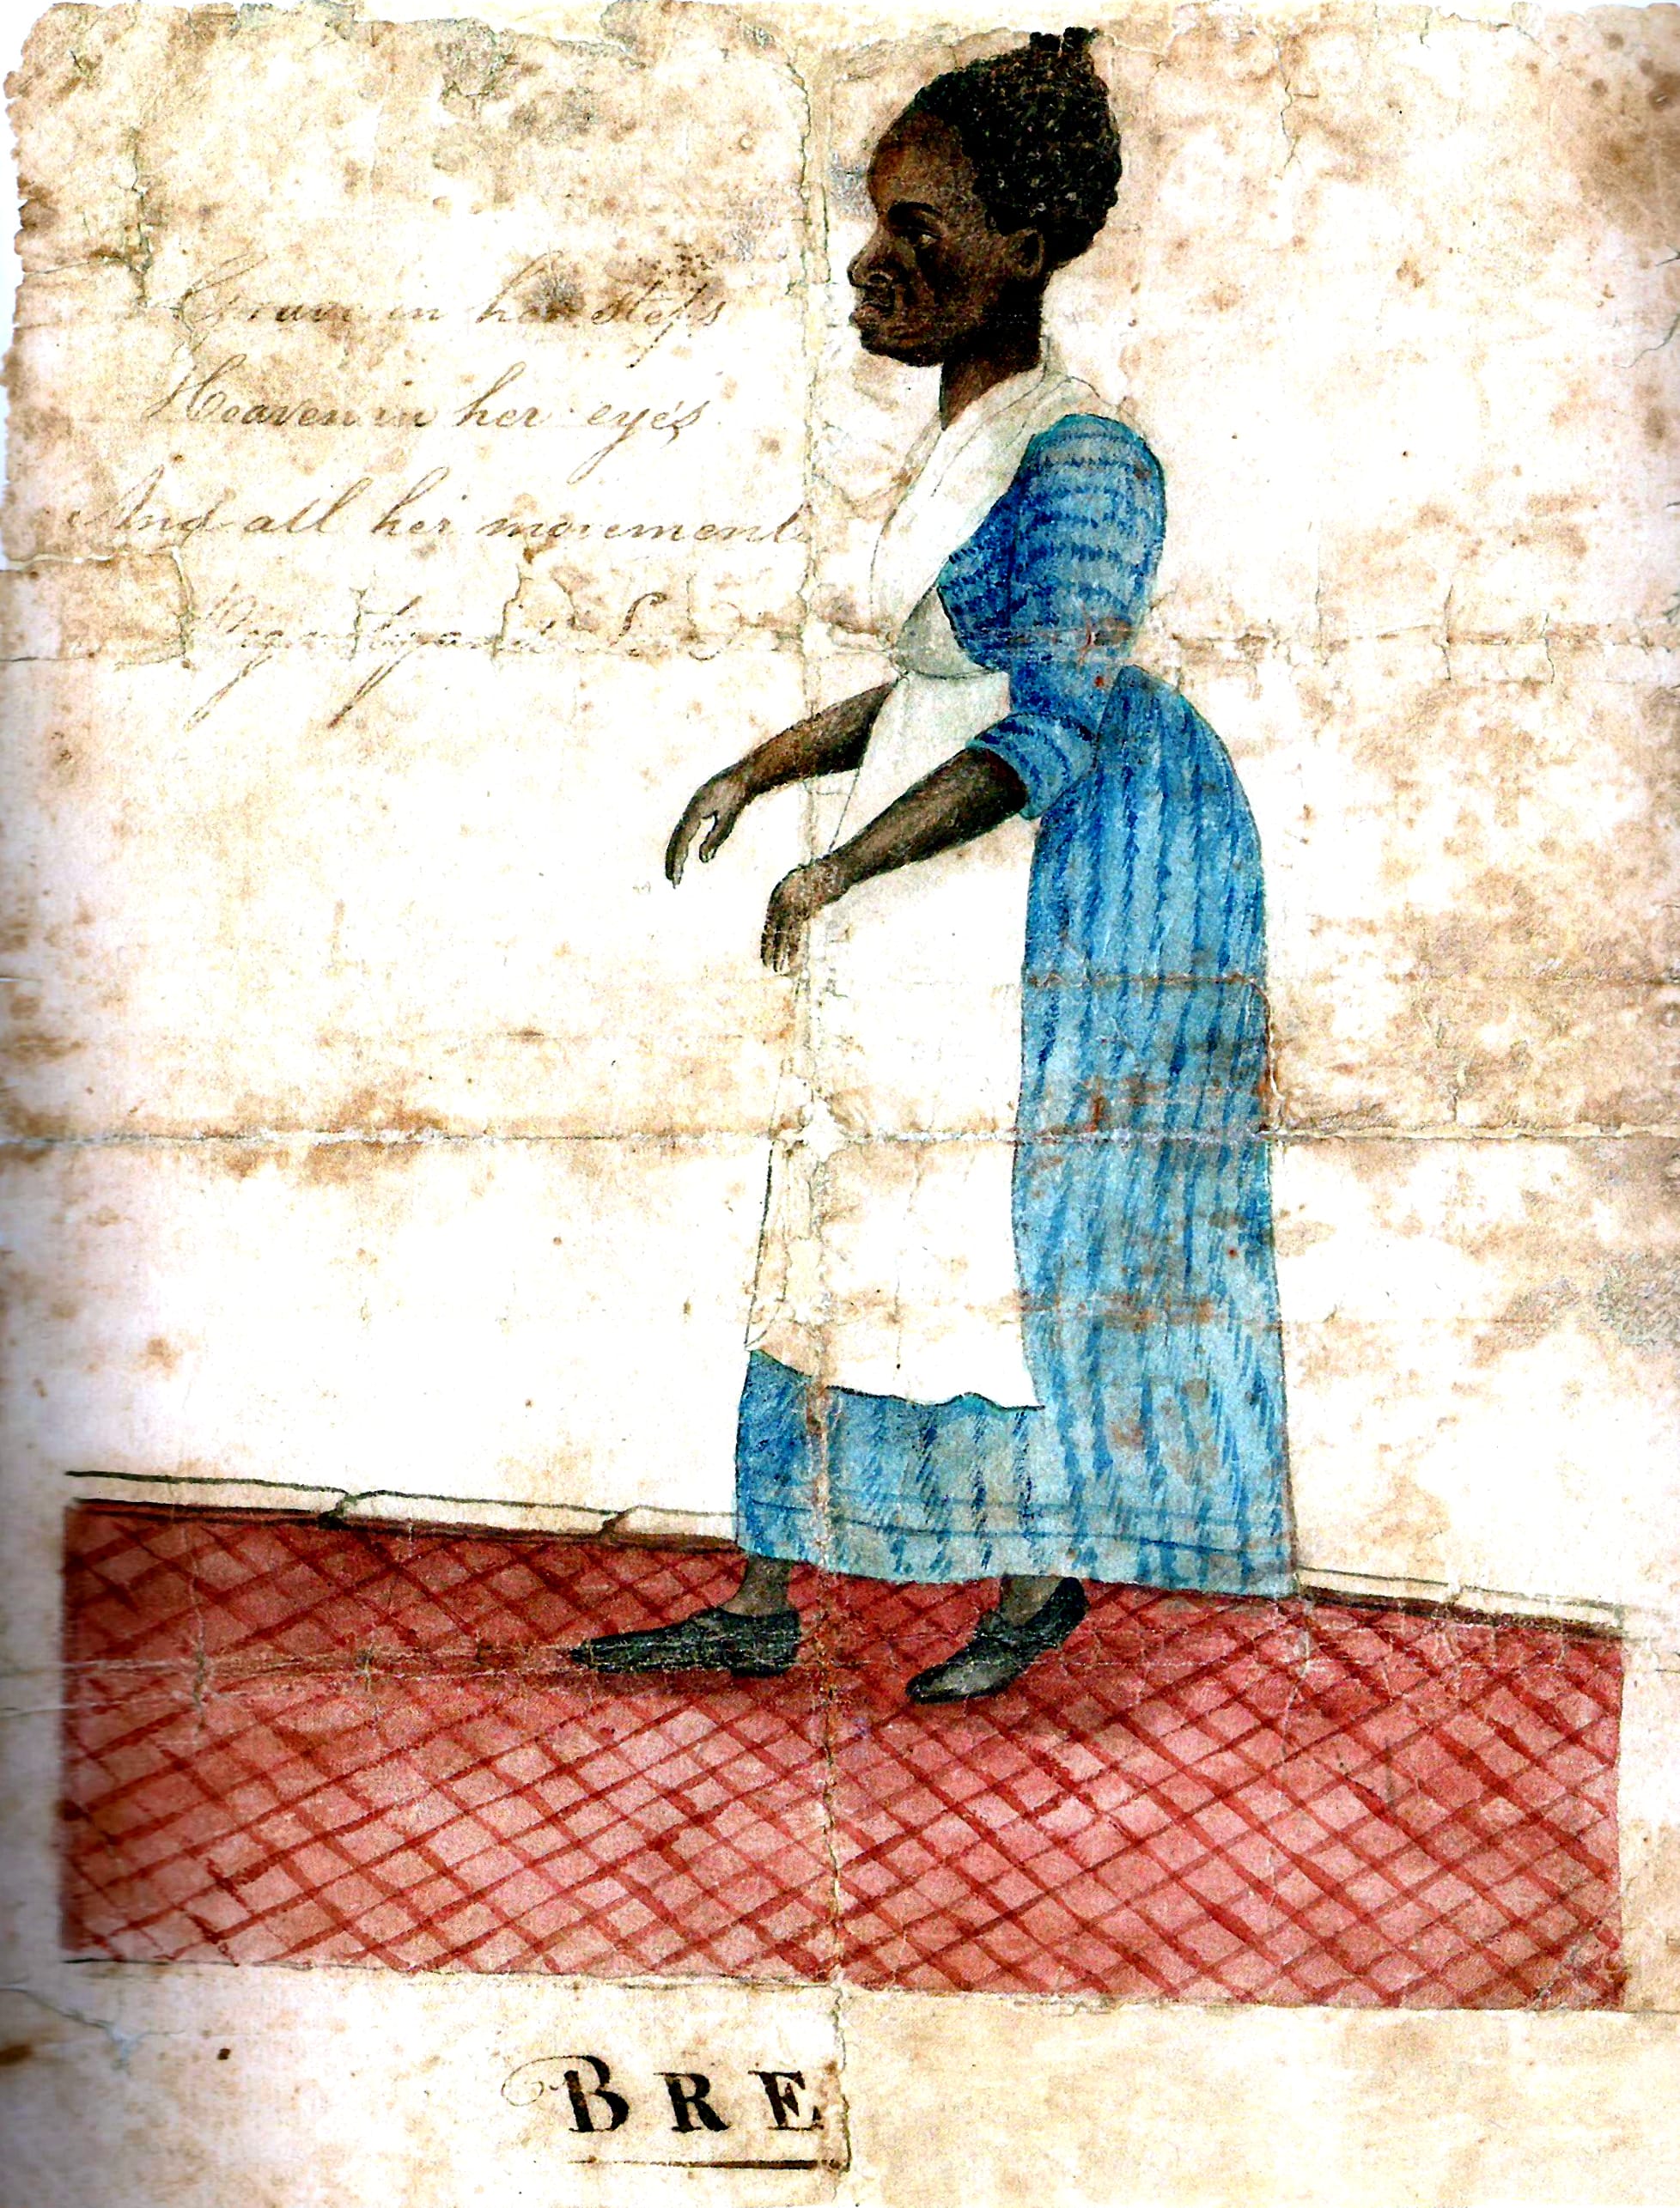 Grave in her steps
Heaven in her eyes
And all her movement
Dignity and Lov
BRE